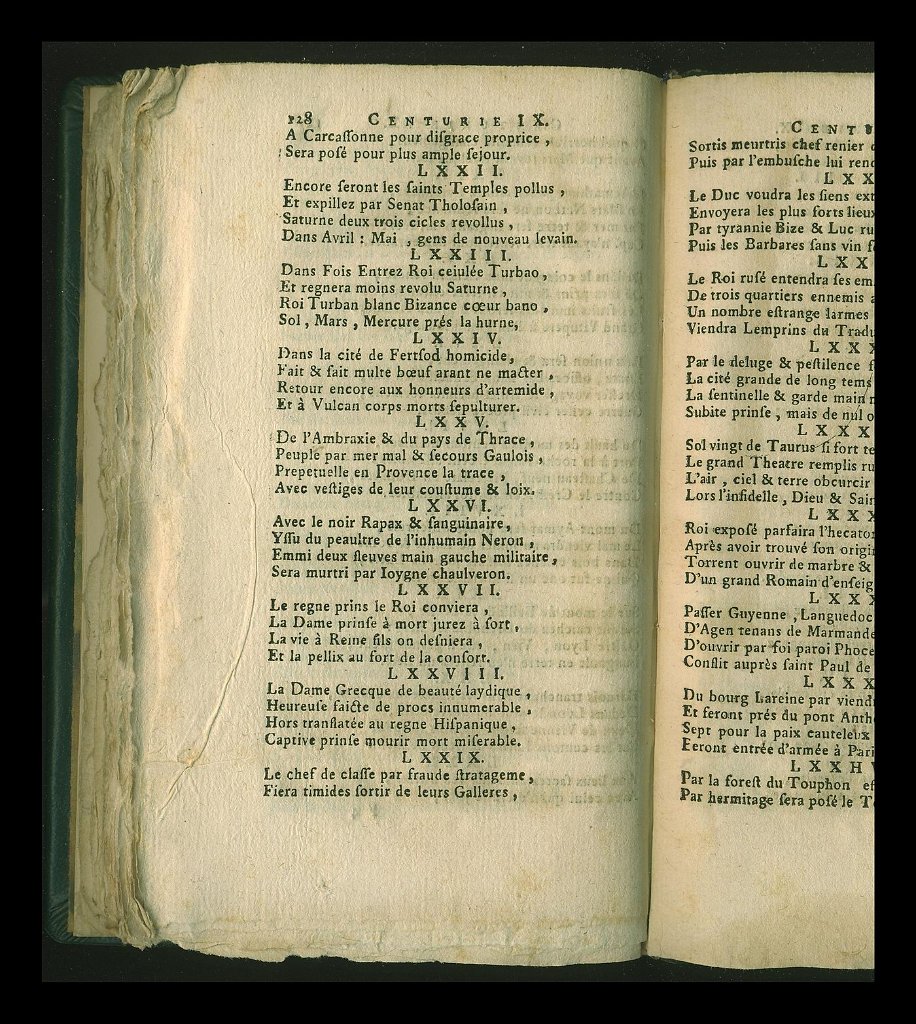 128 CENTURIE IX.
A Carcaſſonne pour diſgrace proprice,
Sera poſé pour plus ample ſejour.
LXXII.
Encore ſeront les ſaints Temples pollus,
Et expillez par Senat Tholoſain,
Saturne deux trois cicles revollus,
Dans Avril : Mai, gens de nouveau levain.
LXXIII.
Dans Fois Entrez Roi ceiulée Turbao,
Et regnera moins revolu Saturne,
Roi Turban blanc Bizance cœur bano,
Sol, Mars, Mercure prés la hurne,
LXXIV.
Dans la cité de Fertſod homicide,
Fait & fait multe bœuf arant ne macter,
Retour encore aux honneurs d'artemide,
Et à Vulcan corps morts ſepulturer.
LXXV.
De l'Ambraxie & du pays de Thrace,
Peuple par mer mal & ſecours Gaulois,
Prepetuelle en Provence la trace,
Avec veſtiges de leur couſtume & loix.
LXXVI.
Avec le noir Rapax & ſanguinaire,
Yſſu du peaultre de l'inhumain Neron,
Emmi deux fleuves main gauche militaire,
Sera murtri par Ioygne chaulveron.
LXXVII.
Le regne prins le Roi conviera,
La Dame prinſe à mort jurez à ſort,
La vie à Reine fils on deſniera,
Et la pellix au fort de la conſort.
LXXVIII.
La Dame Grecque de beauté laydique,
Heureuſe faicte de procs innumerable,
Hors tranſlatée au regne Hiſpanique,
Captive prinſe mourir mort miſerable.
LXXIX.
Le chef de claſſe par fraude ſtratageme,
Fiera timides ſortir de leurs Galleres,
CENTU
Sortis meurtris chef renier
Puis par l'embuſche lui
LXX
Le Duc voudra les ſiens
Envoyera les plus forts
Par tyrannie Bize & Luc
Puis les Barbares ſans vin
LXX
Le Roi ruſé entendra ſes
De trois quartiers ennemis
Un nombre eſtrange larmes
Viendra Lemprins du
LXXX
Par le deluge & peſtilence
La cité grande de long tems
La ſentinelle & garde main
Subite prinſe, mais de nul
LXXX
Sol vingt de Taurus ſi fort
Le grand Theatre remplis
L'air, ciel & terre obcurcir
Lors l'infidelle, Dieu &
LXXX
Roi expoſé parfaira
Après avoir trouvé ſon
Torrent ouvrir de marbre &
D'un grand Romain
LXXX
Paſſer Guyenne, Languedoc
D'Agen tenans de Marmande
D'ouvrir par foi paroi
Conflit auprès ſaint Paul de
LXXX
Du bourg Lareine par
Et feront prés du pont
Sept pour la paix cauteleux
Feront entrée d'armée à
LXXH
Par la foreſt du Touphon
Par hermitage ſera poſé le